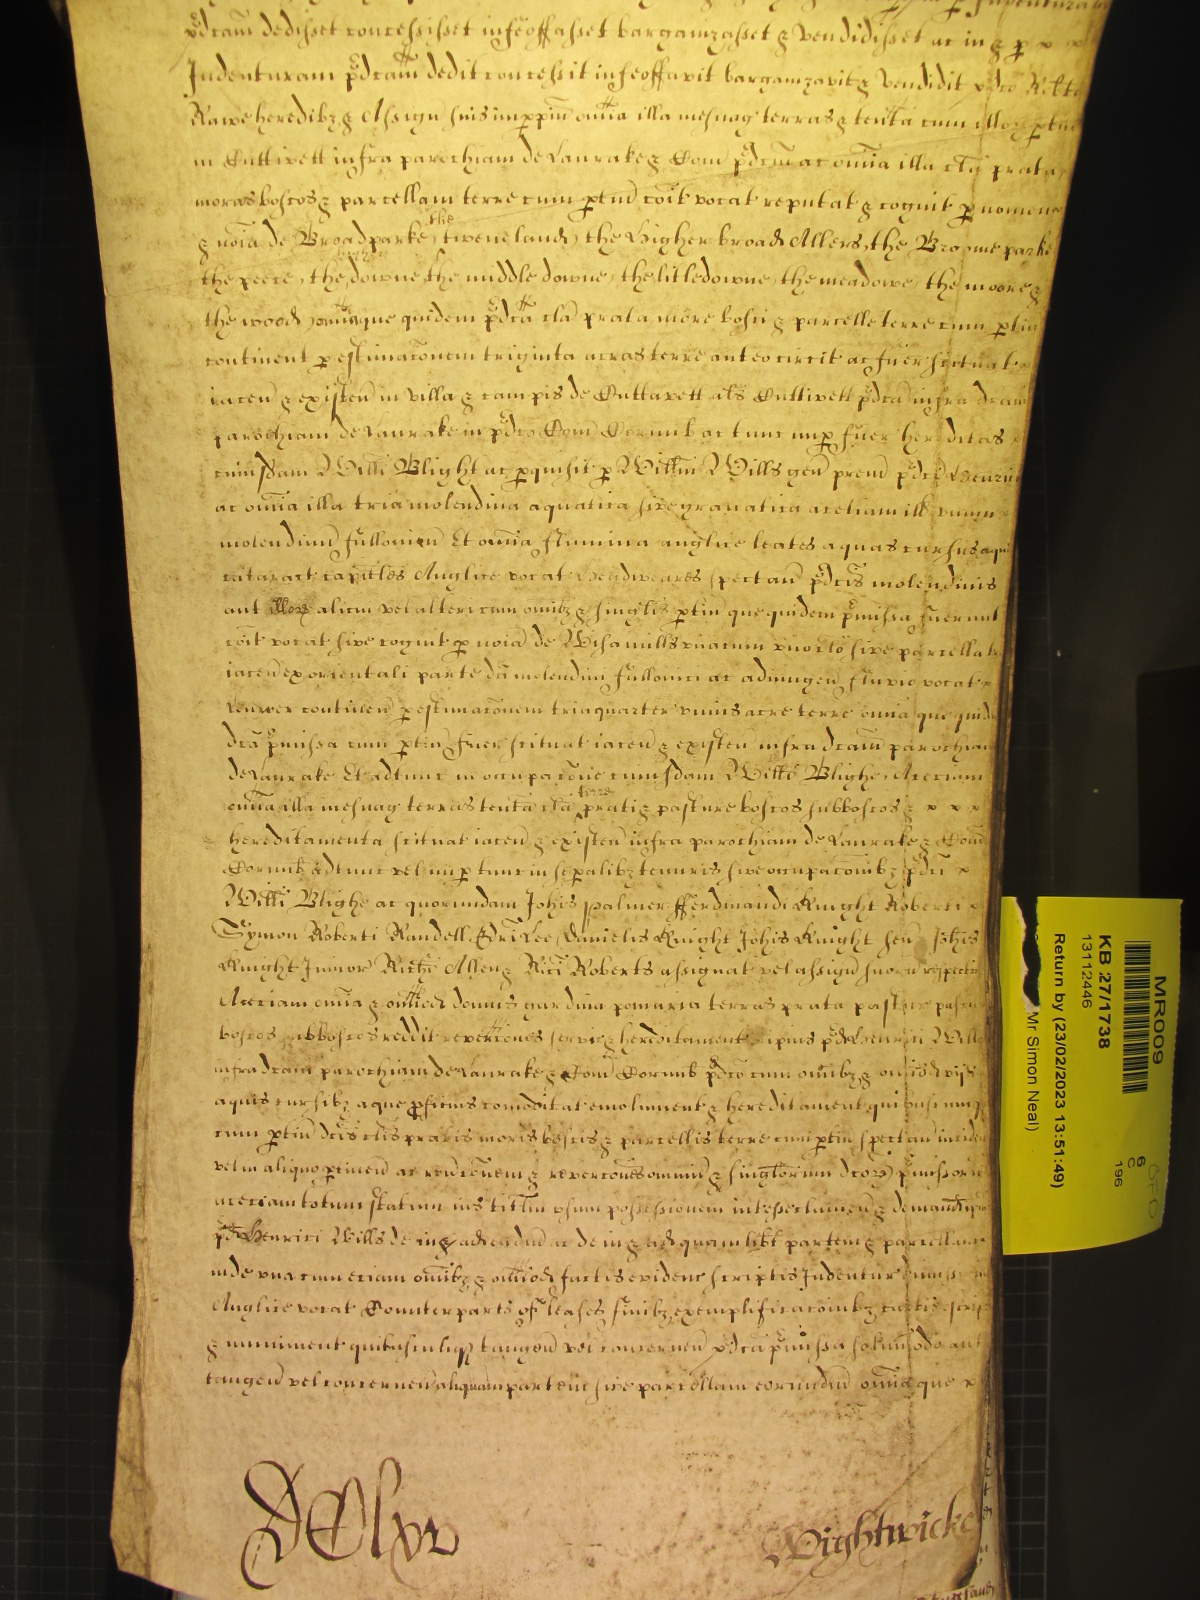 pdcam dedisset concessisset infeoffasset barganizasset & vendidisset ac in & p x x
Indenturam pdcam dedit concessit infeoffavit barganizavit & vendidit pdco Robto
Rawe heredibz & Assign suis imppm omia illa mesuag terras & tenta cum illoz ptin
in Cuttivett infra parochiam de Lanrake & Com pdcm ac omia illa cla prata
moras boscos & parcellam terre cum ptin coit vocat reputat & cognit p nomena
& noia de Broadparke, the tweneland, the Higher broad Allers, the Broome parke
the peece, the higher downe, the middle downe, the litledowne, the meadowe, the moore &
the wood, omiaque quidem pdca cla prata more bosci & parcelle terre cum ptin
continent p estimaconem triginta acras terre anteo circit ac fuer scituat
iacen & existen in villa & campis de Cuttavett als Cuttivett pdca infra dcam
parochiam de Lanrake in pdco Com Cornub ac tunc nup fuer hereditas
cuiusdam Willi Blight ac pquisit p Willm Wills gen prem pdci Henrici
ac omia illa tria molendina aquatica sive granatica acetiam ill unum
molendinu fullonicu Et omia flumina anglice leates aquas cursus aque
cataract capitles Anglice vocat Headweares spectan pdcis molendinis
aut illoz alicui vel alteri cum omibz & singlis ptin que quidem pmissa fuerunt
coit vocat sive cognit p noia de Wisamills unacum uno clo sive parcella t
iacen ex orientali parte dci molendini fullonici ac adiungen fluvio vocat
Lynher continen p estimaconem tria quarter unius acre terre omia que quid
dca pmissa cum ptin fuer scituat iacen & existen infra dcam parochiam
de Lanrake Et adtunc in occupacone cuiusdam Willi Blighe, Aceciam
omia illa mesuag terras tenta cla terre prati & pasture boscos subboscos & x x x
hereditamenta scituat iacen & existen infra parochiam de Lanrake & Com
Cornub adtunc vel nup tunc in sepalibz tenuris sive occupaconibz pdci x
Willi Blighe ac quorundam Johis Palmer Fferdinandi Knight Roberti x
Symon Roberti Randell Edri Lee, Danielis Knight Johis Knight sen Johis
Knight Junior Richi Allen & Rici Roberts assignat vel assign suoru respective
Aceciam omia & omiod domus gardina pomaria terras prata pasture pastur
boscos subboscos reddit revercones servic & hereditament ipius pdci Henrici Wills
infra dcam parochiam de Lanrake & Com Cornub pdco cum omibz & omiod viis
aquis cursibz aque pficuis comoditat emolument & hereditament quibuscunq
cum ptin dcis clis pratis moris boscis & parcellis terre cum ptin spectan inciden
vel in aliquo ptinen ac revconem & revercones omniu & singlorum dcoz pmissoru
aceciam totum statum ius titlm usum possessionem interesse clameu & demand ipius
pdci Henrici Wills de in & ad eadm ac de in & ad quamlibt partem & parcellam
inde unacum eciam omibz & omiod factis evidenc scriptis Indentur
Anglice vocat Counterparts of leases finibz exemplificacoibz cartis script
& muniment quibuscunqz tangen vel concernen pdca pmissa solumodo aut
tangen vel concernen aliquam partem sive parcellam eorundm omia que x
DClxv
Wightwicke
MR009
KB 27/1738
13112446
6
C
196
Return by (23/02/2023 13:51:49)
Mr Simon Neal)